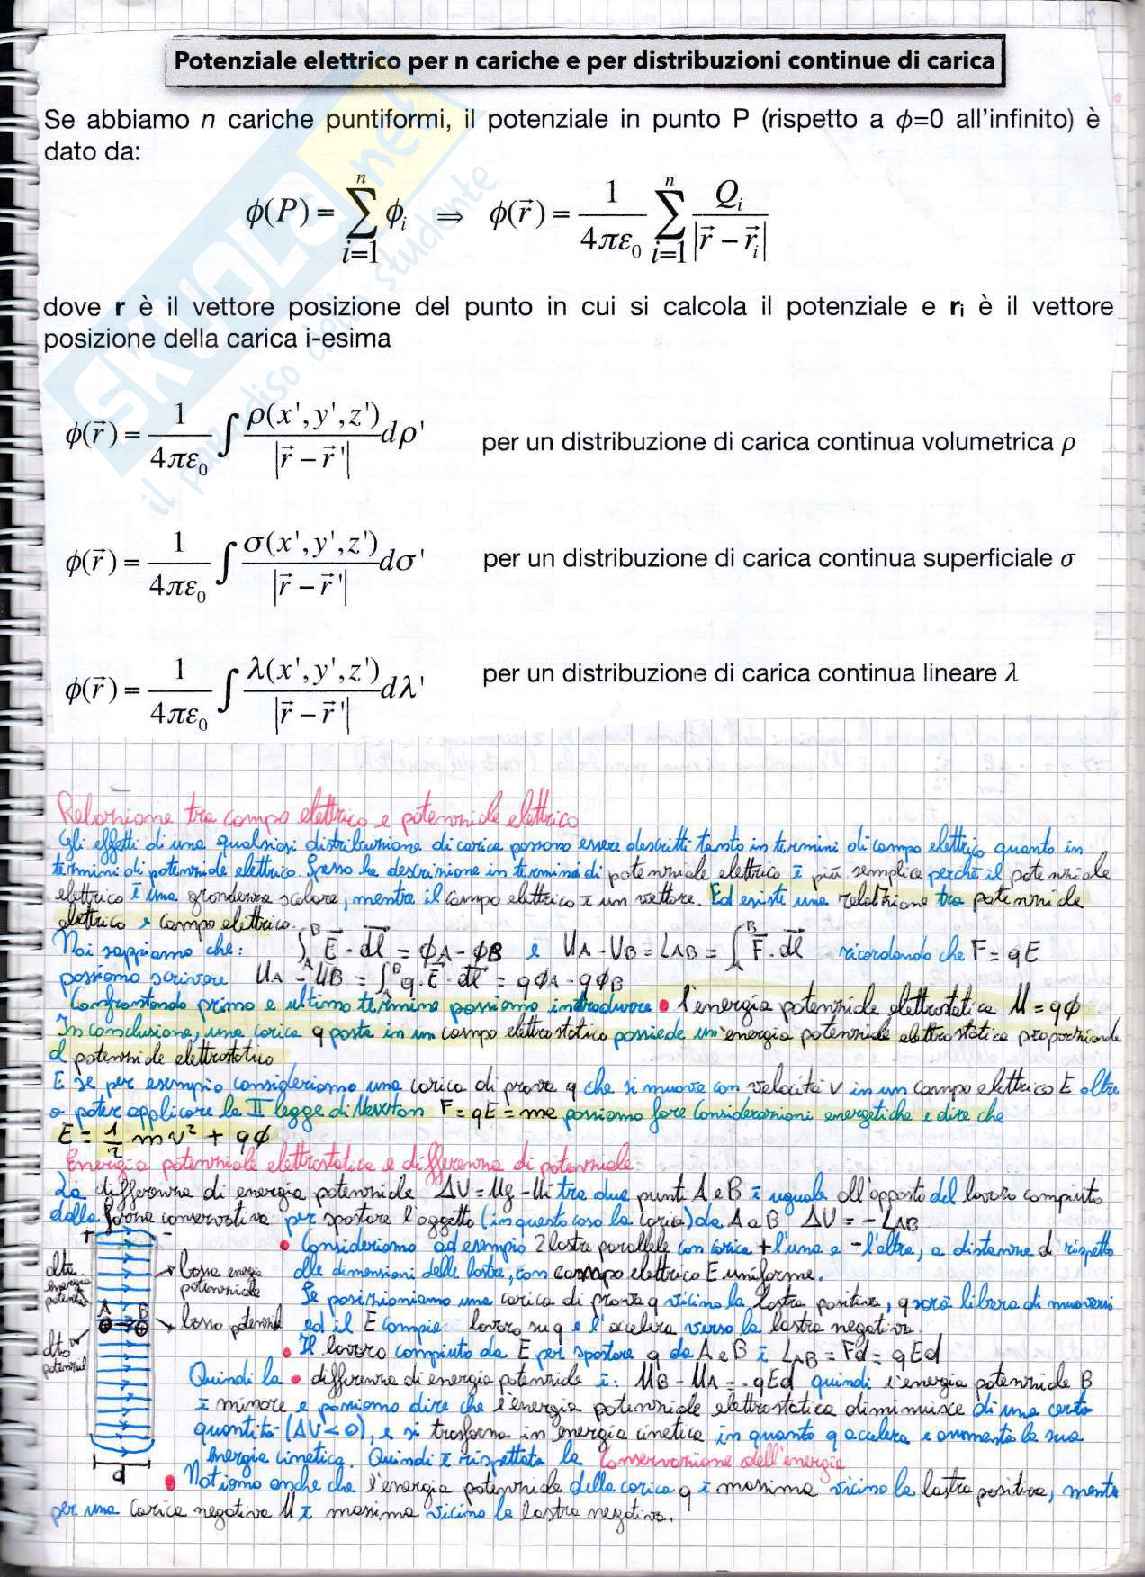 Potenziale elettrico per n cariche e per distribuzioni continue di carica
Se abbiamo n cariche puntiformi, il potenziale in punto P (rispetto a ϕ=0 all'infinito) è
dato da:
ϕ(P) = ∑_{i=1}^{n} ϕ_i ⇒ ϕ(r⃗) = 1/(4πε₀) ∑_{i=1}^{n} Q_i/|r⃗ − r⃗_i|
dove r è il vettore posizione del punto in cui si calcola il potenziale e rᵢ è il vettore
posizione della carica i-esima
ϕ(r⃗) = 1/(4πε₀) ∫ ρ(x',y',z')/|r⃗ − r⃗'| dρ' per un distribuzione di carica continua volumetrica ρ
ϕ(r⃗) = 1/(4πε₀) ∫ σ(x',y',z')/|r⃗ − r⃗'| dσ' per un distribuzione di carica continua superficiale σ
ϕ(r⃗) = 1/(4πε₀) ∫ λ(x',y',z')/|r⃗ − r⃗'| dλ' per un distribuzione di carica continua lineare λ
SKUOLA.net
il paradiso dello studente
Relazione tra campo elettrico e potenziale elettrico
Gli effetti di una qualsiasi distribuzione di carica possono essere descritti tanto in termini di campo elettrico quanto in
termini di potenziale elettrico. Spesso la descrizione in termini di potenziale elettrico è più semplice perché il potenziale
elettrico è una grandezza scalare, mentre il campo elettrico è un vettore. Ed esiste una relazione tra potenziale
elettrico e campo elettrico.
Noi sappiamo che: ∫_A^B E⃗ · dl⃗ = ϕA − ϕB e UA − UB = LAB = ∫_A^B F⃗ · dl⃗ ricordando che F = qE
possiamo scrivere UA − UB = ∫_A^B q · E⃗ · dl⃗ = qϕA − qϕB
Confrontando primo e ultimo termine possiamo introdurre • l'energia potenziale elettrostatica U = qϕ
In conclusione, una carica q posta in un campo elettrostatico possiede un'energia potenziale elettrostatica proporzionale
al potenziale elettrostatico
E se per esempio consideriamo una carica di prova q che si muova con velocità v in un campo elettrico E oltre
a poter applicare la II legge di Newton F = qE = ma possiamo fare considerazioni energetiche e dire che
E = 1/2 mv² + qϕ
Energia potenziale elettrostatica e differenza di potenziale
La differenza di energia potenziale ΔU = Uf − Ui tra due punti A e B è uguale all'opposto del lavoro compiuto
dalla forza conservativa per spostare l'oggetto (in questo caso la carica) da A a B ΔU = − LAB
• Consideriamo ad esempio 2 lastre parallele con carica + l'una e − l'altra, a distanza d rispetto
alle dimensioni delle lastre, con campo elettrico E uniforme.
Se posizioniamo una carica di prova q vicino la lastra positiva, q sarà libera di muoversi
ed il E compie lavoro su q e l'accelera verso la lastra negativa.
• Il lavoro compiuto da E per spostare q da A e B è LAB = Fd = qEd
Quindi la • differenza di energia potenziale è: UB − UA = −qEd quindi l'energia potenziale B
è minore e possiamo dire che l'energia potenziale elettrostatica diminuisce di una certa
quantità (ΔU < 0), e si trasforma in energia cinetica in quanto q accelera e aumenta la sua
energia cinetica. Quindi è rispettata la conservazione dell'energia
• Notiamo anche che l'energia potenziale della carica q è massima vicino la lastra positiva, mentre
per una carica negativa U è massima vicino la lastra negativa.
+ −
alta
energia
potenziale
bassa energia
potenziale
A B
alto
potenziale
basso potenziale
d